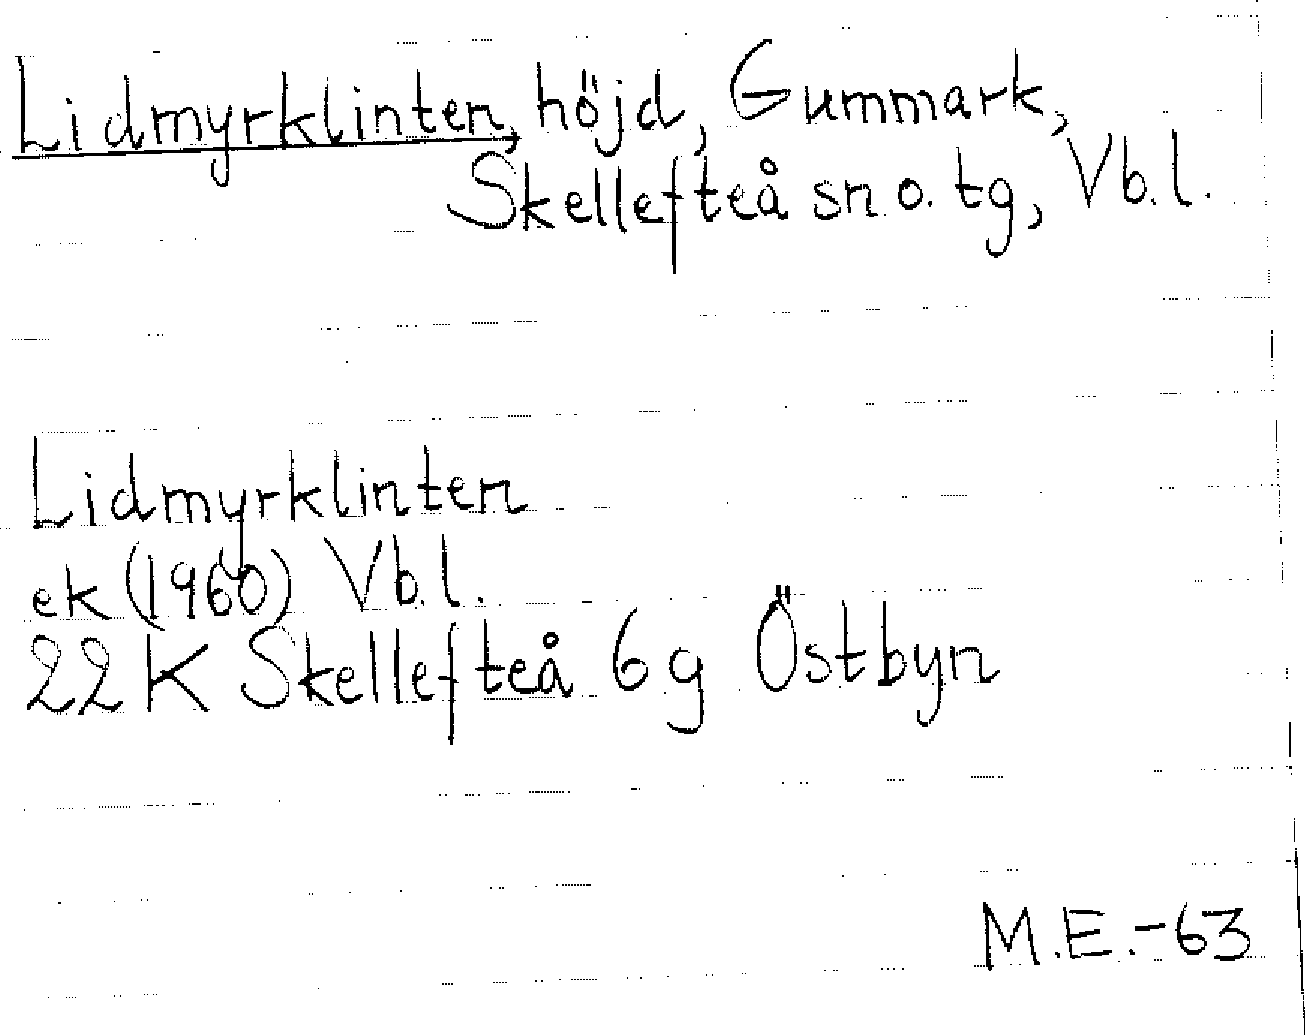 Lidmyrklinten, höjd, Gummark,
Skellefteå sn o. tg, Vb. l.
Lidmyrklinten
ek (1960) Vb. l.
22 K Skellefteå 6 g Östbyn
M.E.-63